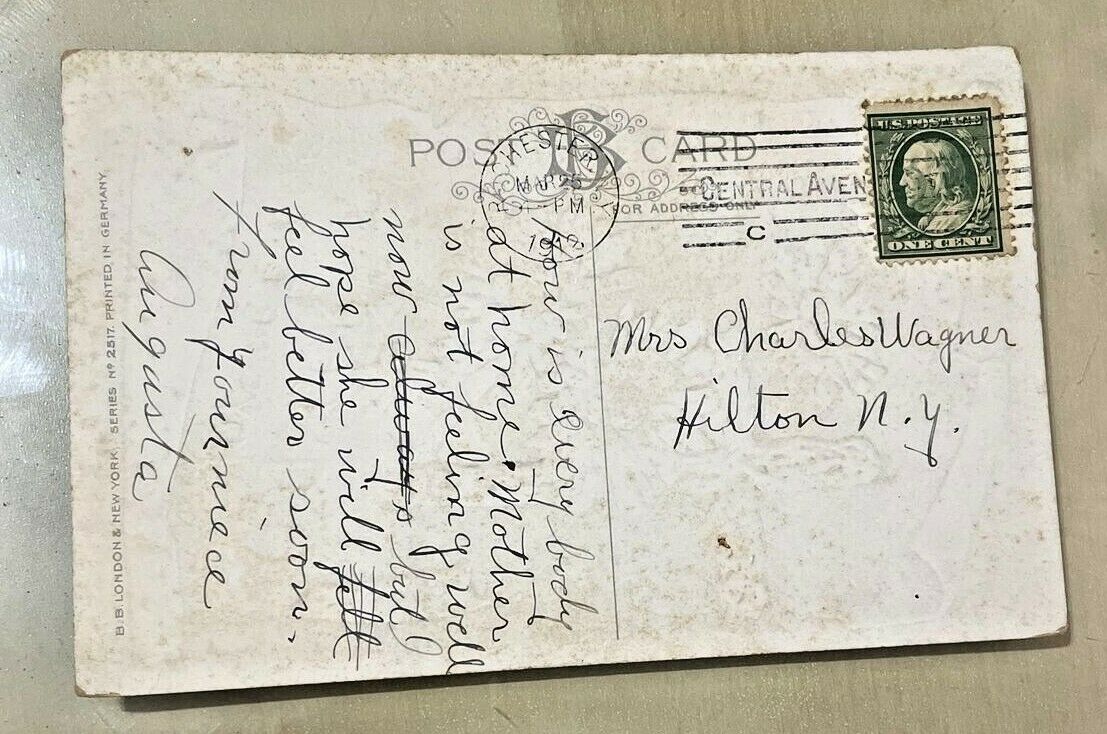 POST CARD
FOR ADDRESS ONLY
ROCHESTER
MAR 25
PM
CENTRAL AVEN
C
U.S. POSTAGE
ONE CENT
Mrs Charles Wagner
Hilton N.Y.
How is every body
at home. Mother
is not feeling well
now always but
hope she will felt
feel better soon.
from your niece
Augusta
B.B LONDON & NEW YORK. SERIES Nº 2517. PRINTED IN GERMANY.